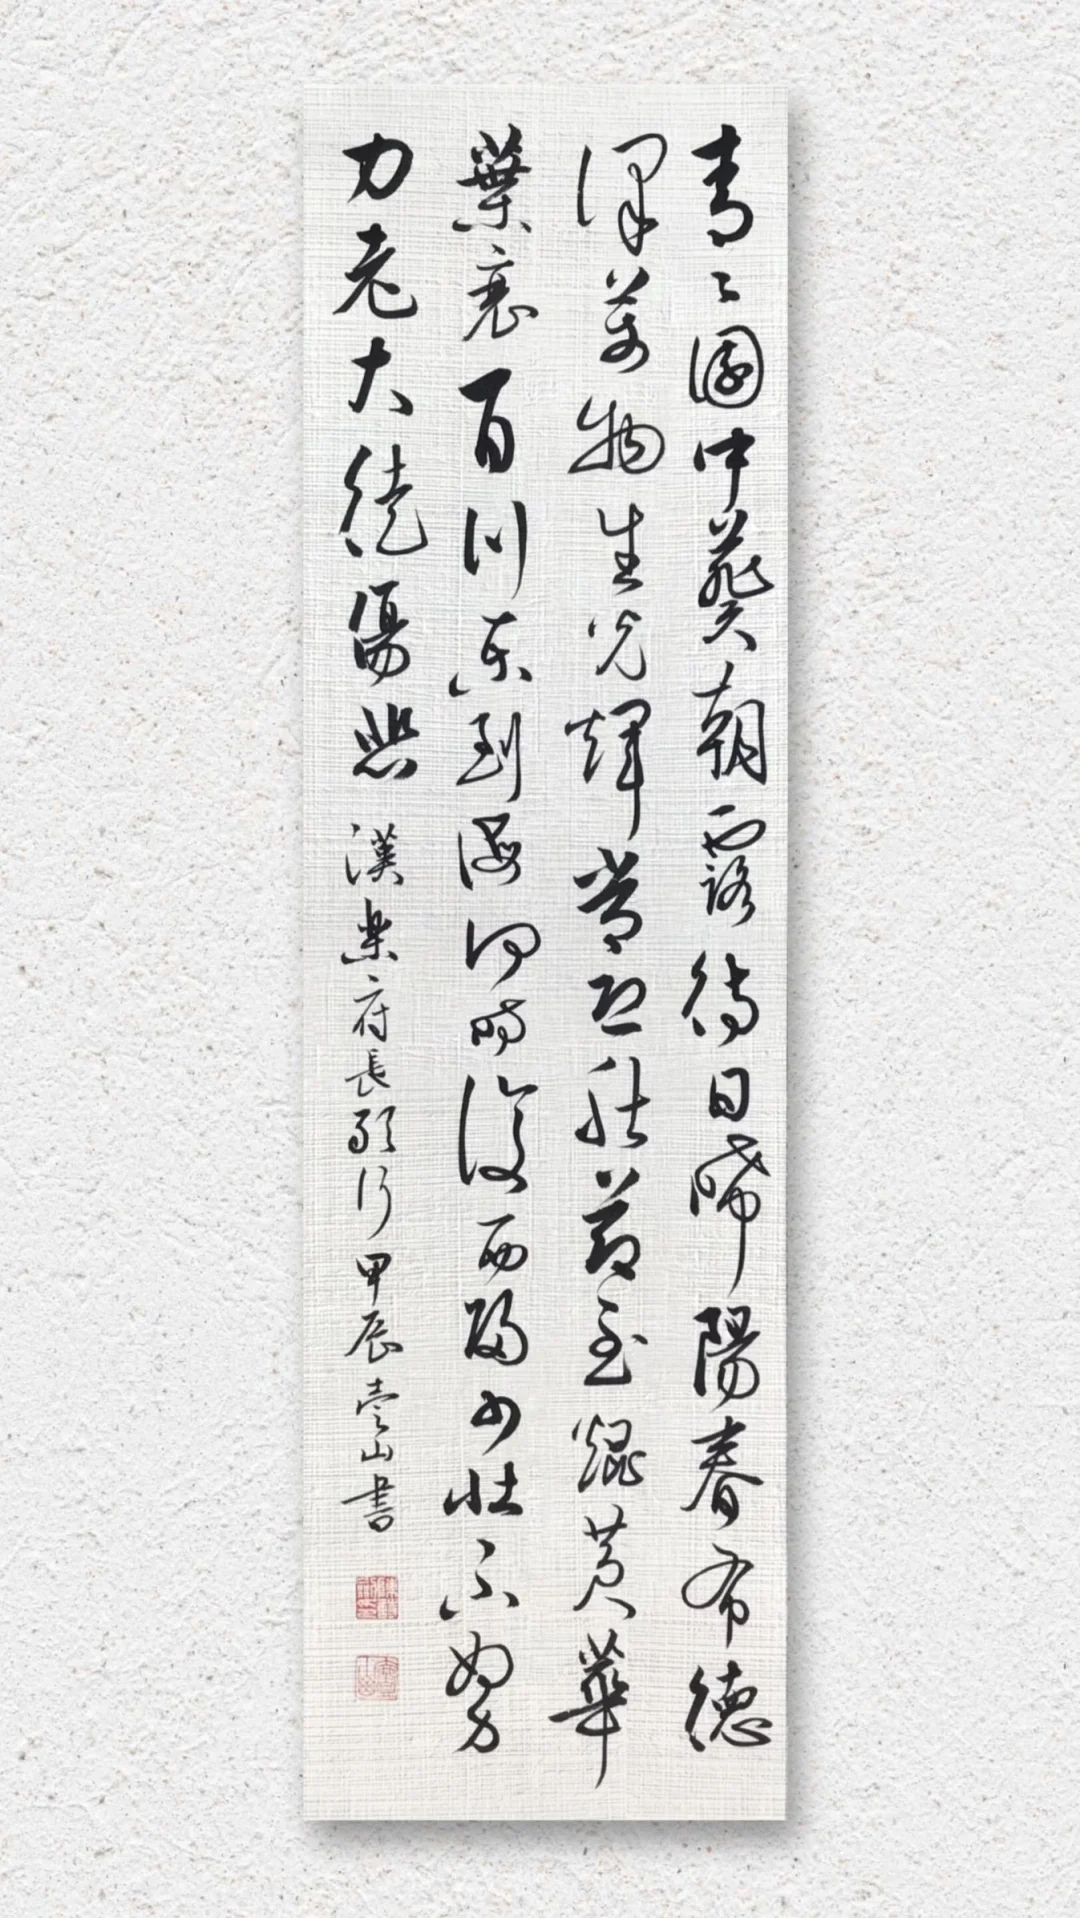 青〻園中葵朝露待日晞陽春布德
澤萬物生光輝常恐秋節至焜黄華
葉衰百川東到海何時復西歸少壯不努
力老大徒傷悲 漢樂府長歌行 甲辰 山書